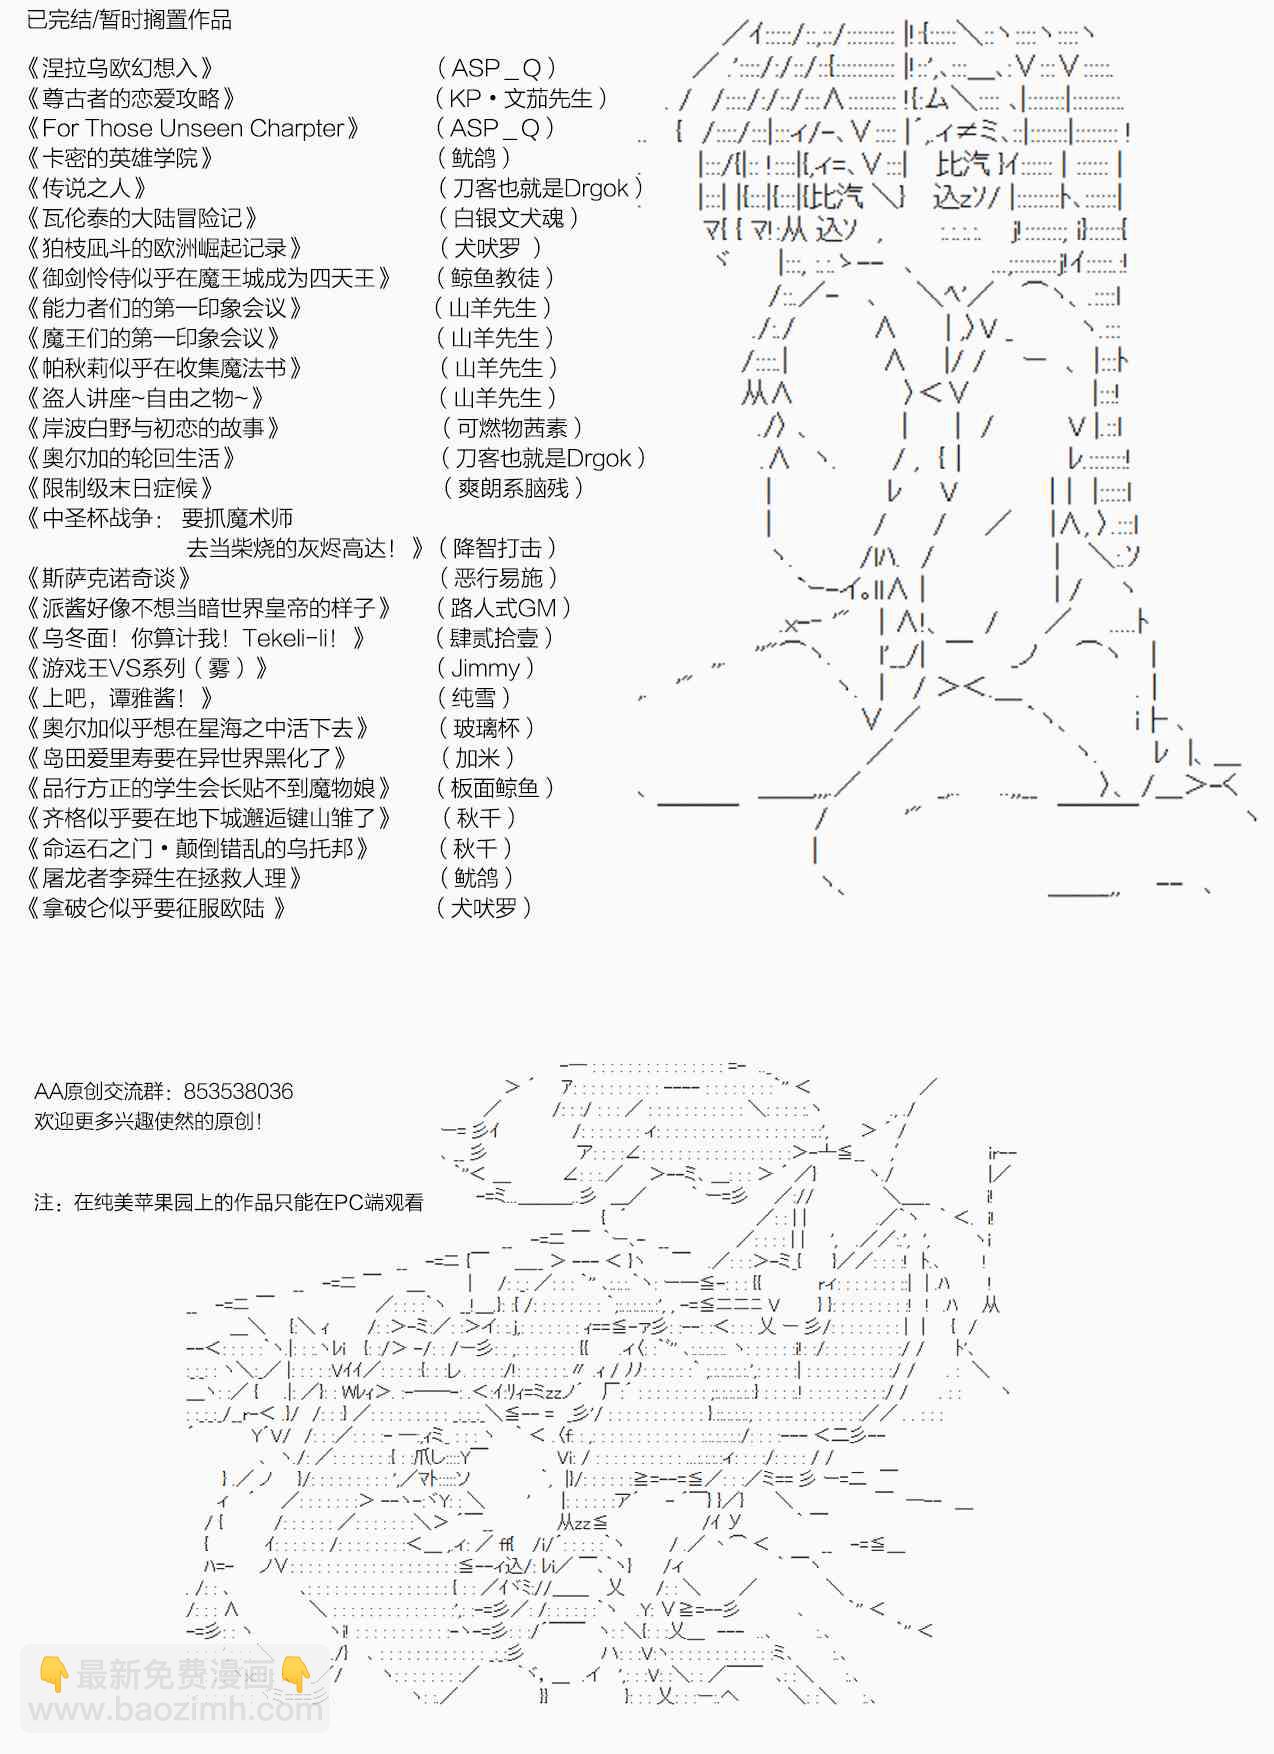 已完结/暂时搁置作品
《涅拉乌欧幻想入》 （ASP_Q）
《尊古者的恋爱攻略》 （KP·文茄先生）
《For Those Unseen Charpter》 （ASP_Q）
《卡密的英雄学院》 （鱿鸽）
《传说之人》 （刀客也就是Drgok）
《瓦伦泰的大陆冒险记》 （白银文犬魂）
《狛枝凪斗的欧洲崛起记录》 （犬吠罗 ）
《御剑怜侍似乎在魔王城成为四天王》 （鲸鱼教徒）
《能力者们的第一印象会议》 （山羊先生）
《魔王们的第一印象会议》 （山羊先生）
《帕秋莉似乎在收集魔法书》 （山羊先生）
《盗人讲座~自由之物~》 （山羊先生）
《岸波白野与初恋的故事》 （可燃物茜素）
《奥尔加的轮回生活》 （刀客也就是Drgok）
《限制级末日症候》 （爽朗系脑残）
《中圣杯战争： 要抓魔术师
去当柴烧的灰烬高达！》（降智打击）
《斯萨克诺奇谈》 （恶行易施）
《派酱好像不想当暗世界皇帝的样子》 （路人式GM）
《乌冬面！你算计我！Tekeli-li！》 （肆贰拾壹）
《游戏王VS系列（雾）》 （Jimmy）
《上吧，谭雅酱！》 （纯雪）
《奥尔加似乎想在星海之中活下去》 （玻璃杯）
《岛田爱里寿要在异世界黑化了》 （加米）
《品行方正的学生会长贴不到魔物娘》 （板面鲸鱼）
《齐格似乎要在地下城邂逅键山雏了》 （秋千）
《命运石之门·颠倒错乱的乌托邦》 （秋千）
《屠龙者李舜生在拯救人理》 （鱿鸽）
《拿破仑似乎要征服欧陆 》 （犬吠罗）
AA原创交流群：853538036
欢迎更多兴趣使然的原创！
注：在纯美苹果园上的作品只能在PC端观看
最新免费漫画
www.baozimh.com